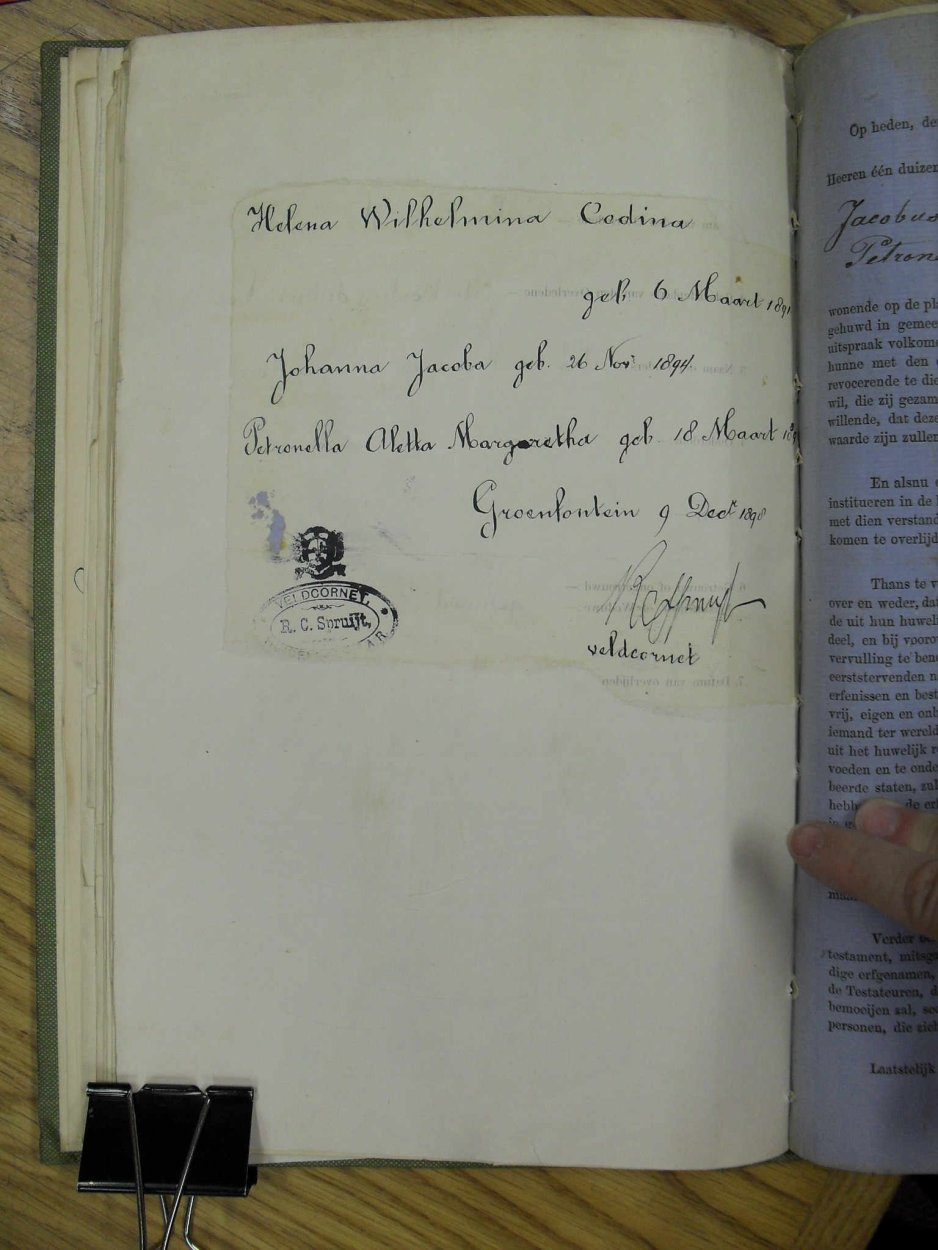 Helena Wilhelmina Codina
geb 6 Maart 1891
Johanna Jacoba geb. 26 Nov. 1894
Petronella Aletta Margaretha geb. 18 Maart
Groenfontein 9 Decr 1898
veldcornet
VELDCORNET,
R. C. Spruijt,
7. Datum van overlijden
Op heden, de
Heeren één duizen
Jacobus
Petron
wonende op de pla
gehuwd in gemee
uitspraak volkome
hunne met den
revocerende te die
wil, die zij gezam
willende, dat deze
waarde zijn zullen
En alsnu
institueren in de
met dien verstand
komen te overlijd
Thans te v
over en weder, dat
de uit hun huweli
deel, en bij vooro
vervulling te bene
eerststervenden n
erfenissen en best
vrij, eigen en onb
iemand ter wereld
uit het huwelijk
voeden en te onde
beerde staten, zul
hebb de er
Verder
testament, mitsga
dige erfgenamen,
de Testateuren, d
bemoeijen zal, see
personen, die zich
Laatstelijk